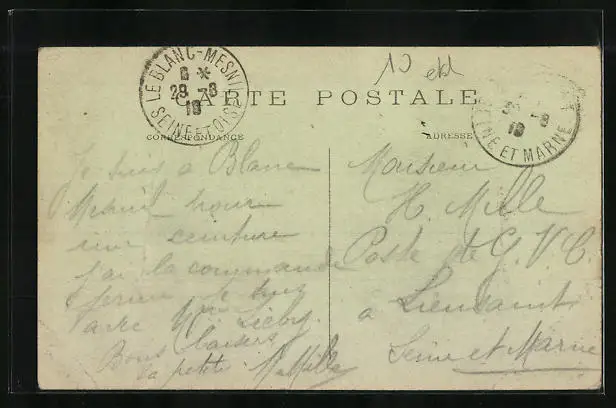 10 et
LE BLANC-MESNIL
29 -8
19
SEINE ET OISE
CARTE POSTALE
-8
19
SEINE ET MARNE
CORRESPONDANCE
ADRESSE
Je suis a Blanc
Mesnil pour
une ceinture
j'ai la commande
ferme Je suis
avec Mme
Bons baisers
ta petite
Monsieur
H. Mille
Poste de G. V. C.
a Lieusaint
Seine et Marne